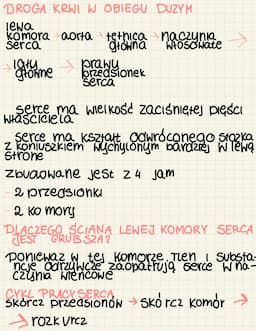 DROGA KRWI W OBIEGU DUŻYM
lewa komora serca → aorta → tętnica główna → naczynia włosowate →
→ żyły główne → prawy przedsionek serca
serce ma wielkość zaciśniętej pięści
właściciela
serce ma kształt odwróconego stożka
z koniuszkiem wychylonym bardziej w lewą
stronę
zbudowane jest z 4 jam
- 2 przedsionki
- 2 komory
DLACZEGO ŚCIANA LEWEJ KOMORY SERCA
JEST GRUBSZA?
ponieważ w tej komorze tlen i substa-
ncje odżywcze zaopatrują serce w na-
czynia wieńcowe
CYKL PRACY SERCA
skórcz przedsionów → skórcz komór →
→ rozkurcz